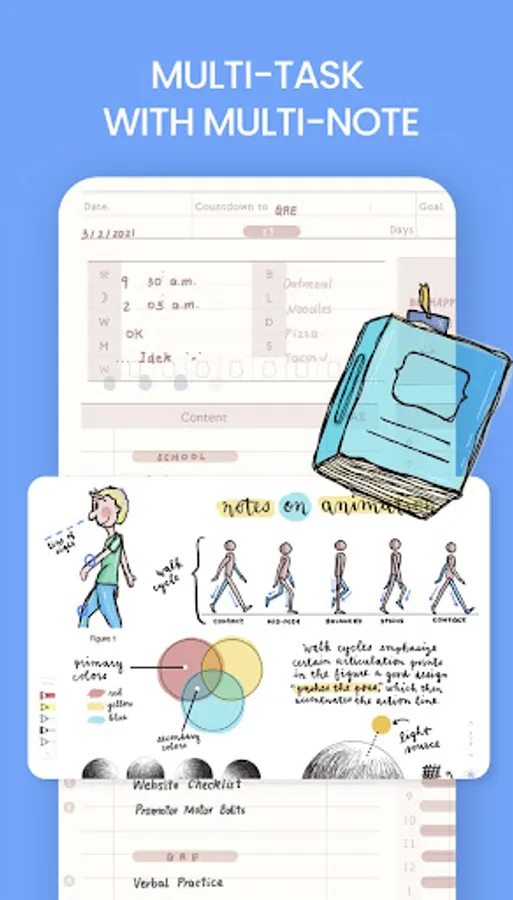 MULTI-TASK
WITH MULTI-NOTE
Date.
Countdown to GRE
Goal
3/2/2021
Days
9 30 a.m.
B Oatmeal
2 05 a.m.
L Noodles
W OK
D Pizza
M ... Idek
S Tacos
W
BE HAPP
Content
SCHOOL
notes on animation
line of sight
walk
cycle
CONTACT
BALANCED
CONTACT
Figure 1
primary
colors
red
yellow
blue
secondary
colors
walk cycles emphasize
certain articulation points
in the figure a good design
pushes the pose, which then
the action line.
light
source
Website Checklist
Promoter Motor Edits
GRE
Verbal Practice
9
10
11
12
1